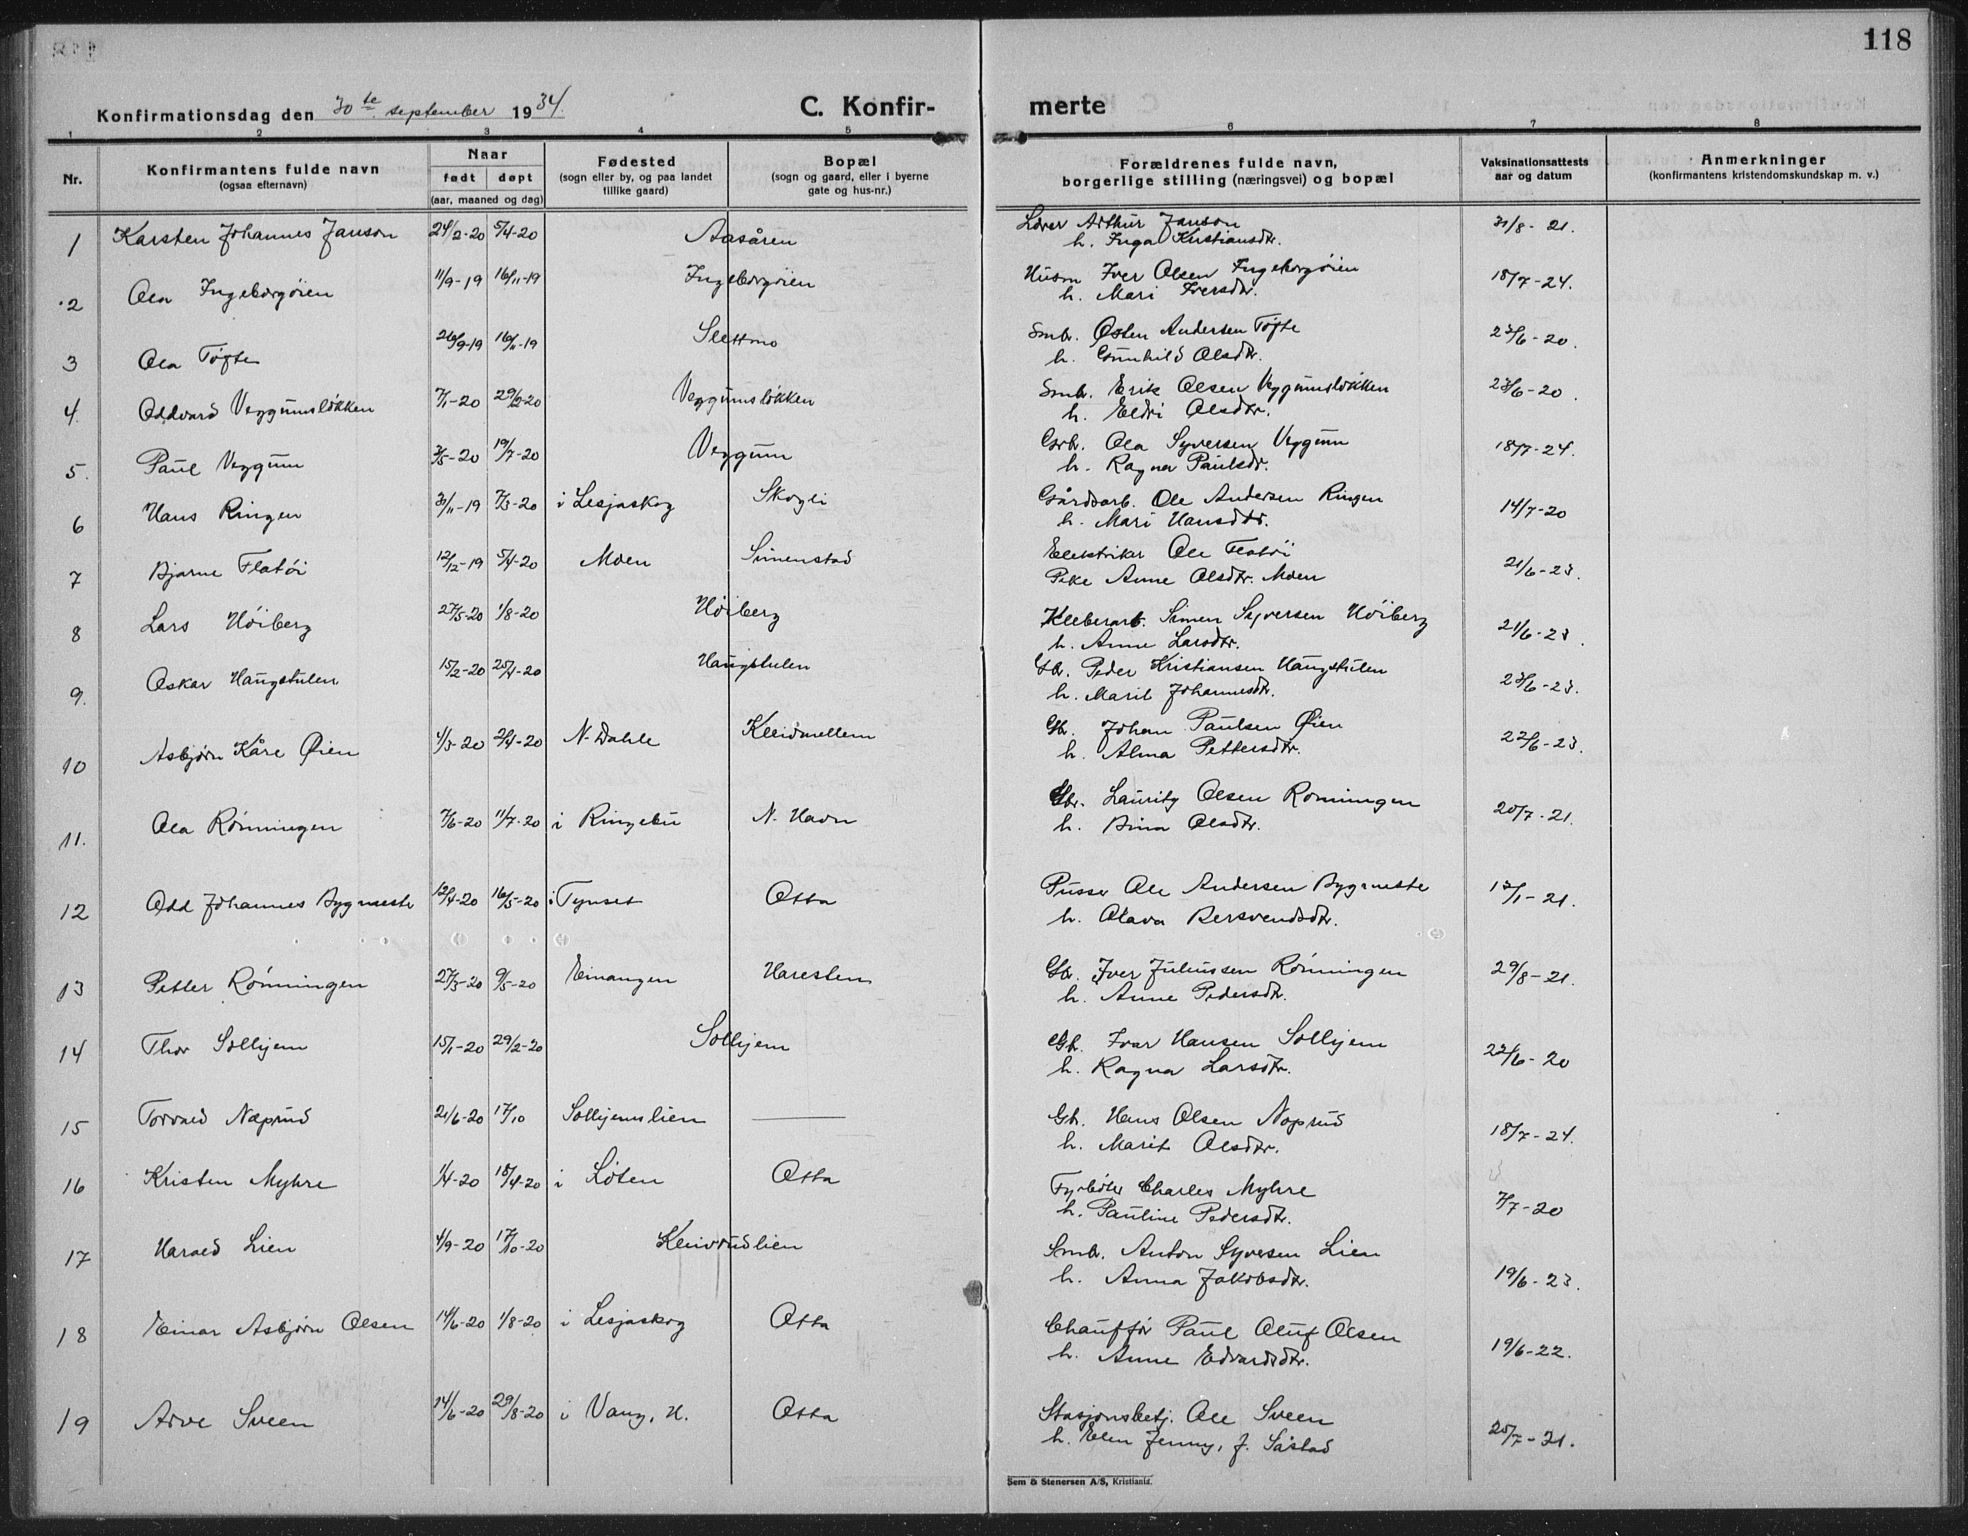 118
Konfirmationsdag den 30te september 1934. C. Konfirmerte
1 2 3 4 5 6 7 8
Nr. | Konfirmantens fulde navn (ogsaa efternavn) | Naar født døpt (aar, maaned og dag) | Fødested (sogn eller by, og paa landet tillike gaard) | Bopæl (sogn og gaard, eller i byerne gate og hus-nr.) | Forældrenes fulde navn, borgerlige stilling (næringsvei) og bopæl | Vaksinationsattests aar og datum | Anmerkninger (konfirmantens kristendomskundskap m. v.)
1 Karsten Johannes Janson 24/2-20 5/4-20 Aasåren Lærer Arthur Janson 31/8-21.
h. Inga Kristiansdtr.
2 Ola Ingeborgöien 11/9-19 16/11-19 Ingeborgöien Husm Iver Olsen Ingeborgöien 18/7-24.
h. Mari Iversdtr.
3 Ola Töfte 26/9-19 16/11-19 Slettmo Smbr. Östen Andersen Töfte 23/6-20.
h. Gunhild Olsdtr.
4. Oddvard Veggumslökken 7/1-20 29/2-20 Veggumslökken Smbr. Erik Olsen Veggumslökken 23/6-20.
h. Eldri Olsdtr.
5. Paul Veggum 3/5-20 19/7-20 Veggum Grbr. Ola Syversen Veggum 18/7-24.
h. Ragna Paulsdtr.
6 Hans Ringen 3/11-19 7/3-20 i Lesjaskog Skogli Gårdarb. Ole Andersen Ringen 14/7-20
h. Mari Hansdtr.
7 Bjarne Flatöi 12/12-19 5/4-20 Moen Simenstad Elektriker Ole Flatöi 21/6-23.
Pike Anne Olsdtr. Moen
8 Lars Höiberg 27/5-20 1/8-20 Höiberg Kleberarb. Simen Syversen Höiberg 21/6-23.
h. Anne Larsdtr.
9. Oskar Haugstulen 15/2-20 25/4-20 Haugstulen Gbr. Peder Kristiansen Haugstulen 23/6-23.
h. Marit Johannesdtr.
10 Asbjørn Kåre Øien 4/3-20 2/4-20 N. Dahle Kleivmellem Gbr. Johan Paulsen Øien 22/6-23.
h. Alma Pettersdtr.
11. Ola Rönningen 7/6-20 11/7-20 i Ringebu N. Havn Gbr. Lauritz Olsen Rönningen 20/7-21.
h. Dina Olsdtr.
12 Odd Johannes Bygmester 12/4-20 16/5-20 i Tynset Otta Pusser Ole Andersen Bygmester 12/1-21.
h. Olava Bersvendsdtr.
13 Petter Rönningen 27/3-20 9/5-20 Einangen Haresten Gbr. Iver Juliussen Rönningen 29/8-21.
h. Anne Pedersdtr.
14 Thor Solhjem 15/1-20 29/2-20 Solhjem Gbr. Ivar Hansen Solhjem 22/6-20
h. Ragna Larsdtr.
15 Torvald Næprud 21/6-20 17/10 Solhjemslien — Gbr. Hans Olsen Næprud 18/7-24.
h. Marit Olsdtr.
16 Kristen Myhre 1/4-20 18/4-20 i Løten Otta Fyrböter Charles Myhre 7/7-20
h. Pauline Pedersdtr.
17 Harald Lien 4/9-20 17/10-20 Kleivrudlien Smbr. Anton Syversen Lien 19/6-23.
h. Anna Jakobsdtr.
18 Einar Asbjørn Olsen 14/6-20 1/8-20 i Lesjaskog Otta Chaufför Paul Oluf Olsen 19/6-22.
h. Anne Edvardsdtr.
19 Arve Sveen 14/6-20 29/8-20 i Vang, H. Otta Stasjonsbetj. Ole Sveen 20/7-21.
h. Elen Jenny, J. Såstad
Sem & Stenersen A/S, Kristiania.